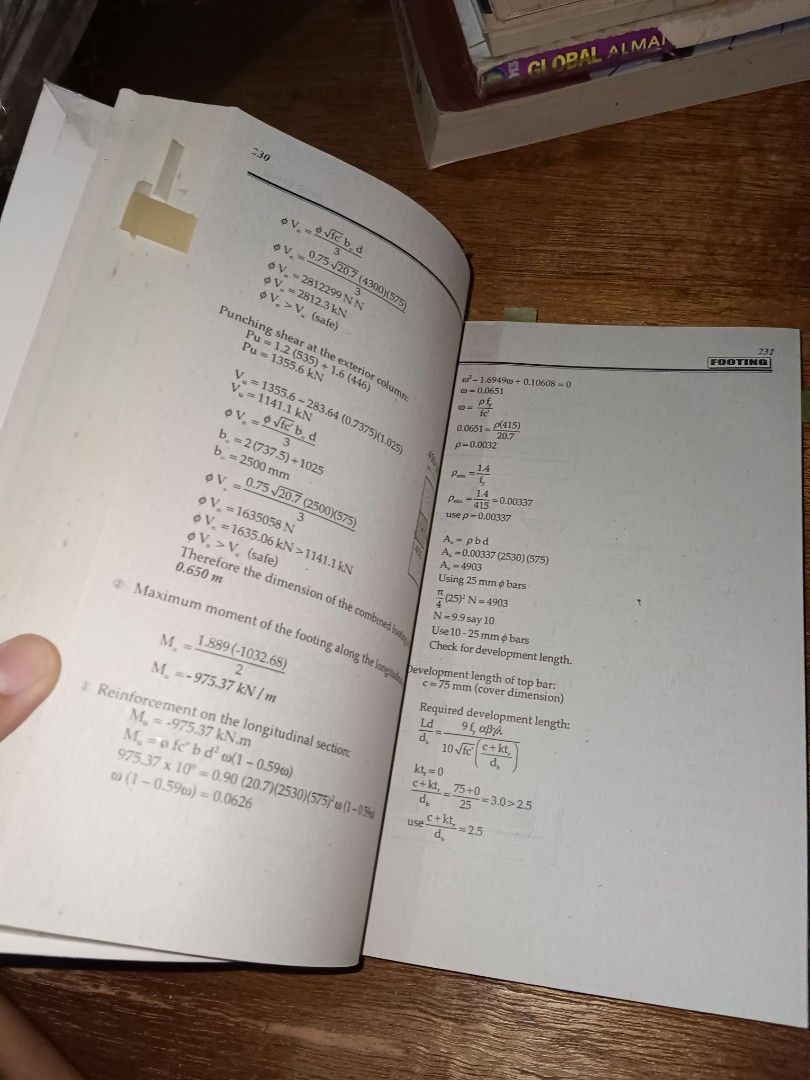 GLOBAL ALMA
230
φ Vₙ = φ √fc' bₒ d / 3
φ Vₙ = 0.75 √20.7 (4300)(575) / 3
φ Vₙ = 2812299 N N
φ Vₙ = 2812.3 kN
φ Vₙ > Vᵤ (safe)
Punching shear at the exterior column:
Pu = 1.2 (535) + 1.6 (446)
Pu = 1355.6 kN
Vᵤ = 1355.6 – 283.64 (0.7375)(1.025)
Vᵤ = 1141.1 kN
φ Vₙ = φ √fc' bₒ d / 3
bₒ = 2 (737.5) + 1025
bₒ = 2500 mm
φ Vₙ = 0.75 √20.7 (2500)(575) / 3
φ Vₙ = 1635058 N
φ Vₙ = 1635.06 kN > 1141.1 kN
φ Vₙ > Vᵤ (safe)
Therefore the dimension of the combined footing
0.650 m
② Maximum moment of the footing along the
Mᵤ = 1.889 (-1032.68) / 2
Mᵤ = -975.37 kN / m
Reinforcement on the longitudinal section:
Mᵤ = -975.37 kN.m
Mᵤ = ø fc' b d² ω(1 – 0.59ω)
975.37 x 10⁶ = 0.90 (20.7)(2530)(575)² ω (1 – 0.59ω)
ω (1 – 0.59ω) = 0.0626
231
FOOTING
ω² – 1.6949ω + 0.10608 = 0
ω = 0.0651
ω = ρ fᵧ / fc'
0.0651 = ρ(415) / 20.7
ρ = 0.0032
ρmin = 1.4 / fᵧ
ρmin = 1.4 / 415 = 0.00337
use ρ = 0.00337
Aₛ = ρ b d
Aₛ = 0.00337 (2530) (575)
Aₛ = 4903
Using 25 mm φ bars
π/4 (25)² N = 4903
N = 9.9 say 10
Use 10 - 25 mm φ bars
Check for development length.
Development length of top bar:
c = 75 mm (cover dimension)
Required development length:
Ld / d_b = 9 fᵧ αβγλ / 10 √fc' (c + ktᵣ / d_b)
ktᵣ = 0
c + ktᵣ / d_b = 75 + 0 / 25 = 3.0 > 2.5
use c + ktᵣ / d_b = 2.5